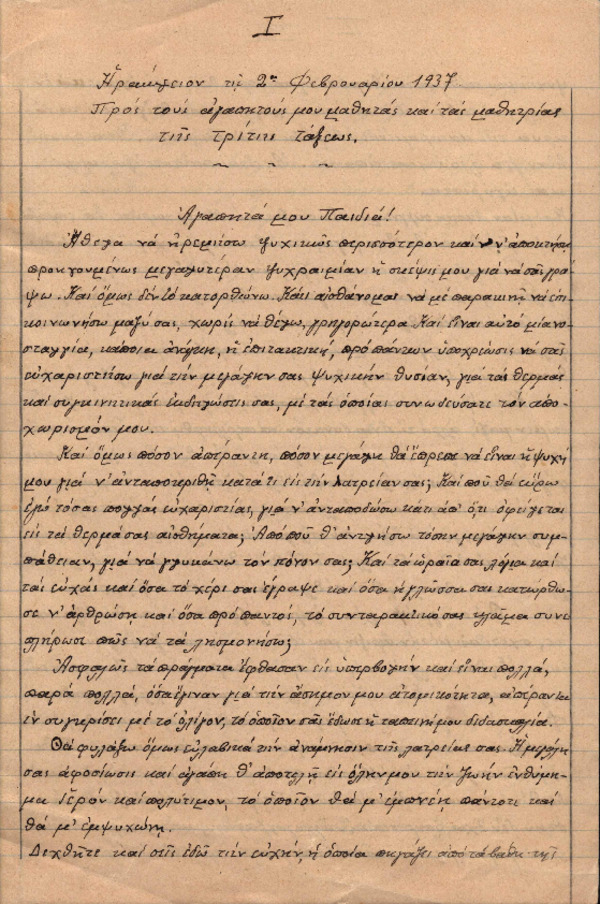 I
Ἡράκλειον τῇ 2ᾳ Φεβρουαρίου 1937.
Πρός τούς ἀγαπητούς μου μαθητάς καί τάς μαθητρίας
τῆς τρίτης τάξεως.
~ ~ ~
Ἀγαπητά μου Παιδιά!
Ἤθελα νά ἠρεμήσω ψυχικῶς περισσότερον καί ν' ἀποκτήσῃ
προηγουμένως μεγαλυτέραν ψυχραιμίαν ἡ σκέψις μου γιά νά σᾶς γρά-
ψω. Καί ὅμως δέν τό κατορθώνω. Κάτι αἰσθάνομαι νά μέ παρακινῇ νά ἐπι-
κοινωνήσω μαζύ σας, χωρίς νά θέλω, γρηγορώτερα. Καί εἶναι αὐτό μία νο-
σταλγία, κάποια ἀνάγκη, ἡ ἐπιτακτική, πρό πάντων ὑποχρέωσις νά σᾶς
εὐχαριστήσω γιά τήν μεγάλην σας ψυχικήν θυσίαν, γιά τάς θερμάς
καί συγκινητικάς ἐκδηλώσεις σας, μέ τάς ὁποίας συνωδεύσατε τόν ἀπο-
χωρισμόν μου.
Καί ὅμως πόσον ἀπέραντη, πόσον μεγάλη θά ἔπρεπε νά εἶναι ἡ ψυχή
μου γιά ν' ἀνταποκριθῇ κατά τι εἰς τήν λατρείαν σας; Καί ποῦ θά εὕρω
ἐγώ τόσας πολλάς εὐχαριστίας, γιά ν' ἀνταποδώσω κάτι ἀπ' ὅ,τι ὀφείλεται
εἰς τά θερμά σας αἰσθήματα; Ἀπό ποῦ θ' ἀντλήσω τόσην μεγάλην συμ-
πάθειαν, γιά νά γλυκάνω τόν πόνον σας; Καί τά ὡραῖα σας λόγια καί
τάς εὐχάς καί ὅσα τό χέρι σας ἔγραψε καί ὅσα ἡ γλῶσσα σας κατώρθω-
σε ν' ἀρθρώσῃ καί ὅσα πρό παντός, τό συνταρακτικό σας κλάμα συνε-
πλήρωσε πῶς νά τά λησμονήσω;
Ἀσφαλῶς τά πράγματα ἔφθασαν εἰς ὑπερβολήν καί εἶναι πολλά,
παρά πολλά, ὅσα ἔγιναν γιά τήν ἄσημον μου ἀτομικότητα, ἀπέραντα
ἐν συγκρίσει μέ τό ὀλίγον, τό ὁποῖον σᾶς ἔδωσε ἡ ταπεινή μου διδασκαλία.
Θά φυλάξω ὅμως εὐλαβικά τήν ἀνάμνησιν τῆς λατρείας σας. Ἡ μεγάλη
σας ἀφοσίωσις καί ἀγάπη θ' ἀποτελῇ εἰς ὅλην μου τήν ζωήν ἐνθύμη-
μα ἱερόν καί πολύτιμον, τό ὁποῖον θά μ' ἐμπνέῃ πάντοτε καί
θά μ' ἐμψυχώνῃ.
Δεχθῆτε καί σεῖς ἐδῶ τήν εὐχήν, ἡ ὁποία πηγάζει ἀπό τά βάθη τῆς